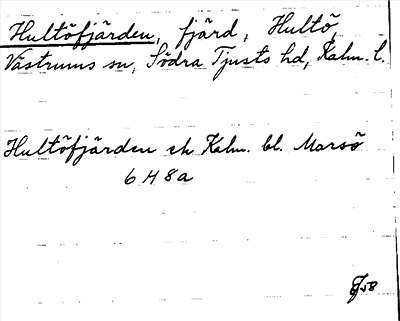 Hultöfjärden, fjärd, Hultö,
Västrums sn, Södra Tjusts hd, Kalm. l.
Hultöfjärden ek Kalm. bl. Marsö
6 H 8a